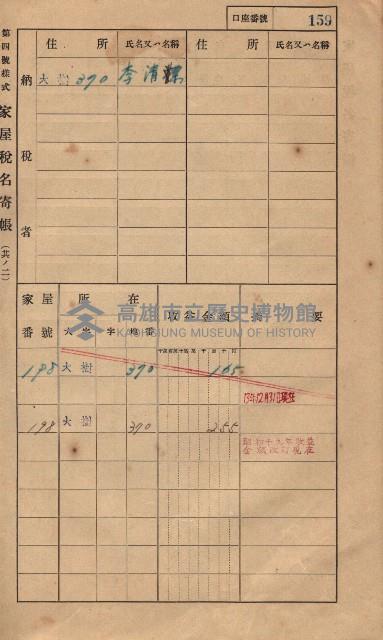 口座番號 159
第四號樣式 家屋稅名寄帳 (其ノ二)
納稅者
住所 氏名又ハ名稱 住所 氏名又ハ名稱
大樹 370 李清
家屋番號 所在 收益金額 摘要
大字 字 地番
198 大樹 370 165
13年12月31日現在
198 大樹 370 255
昭和十九年收益
金額改訂現在
高雄市立歷史博物館
KAOHSIUNG MUSEUM OF HISTORY